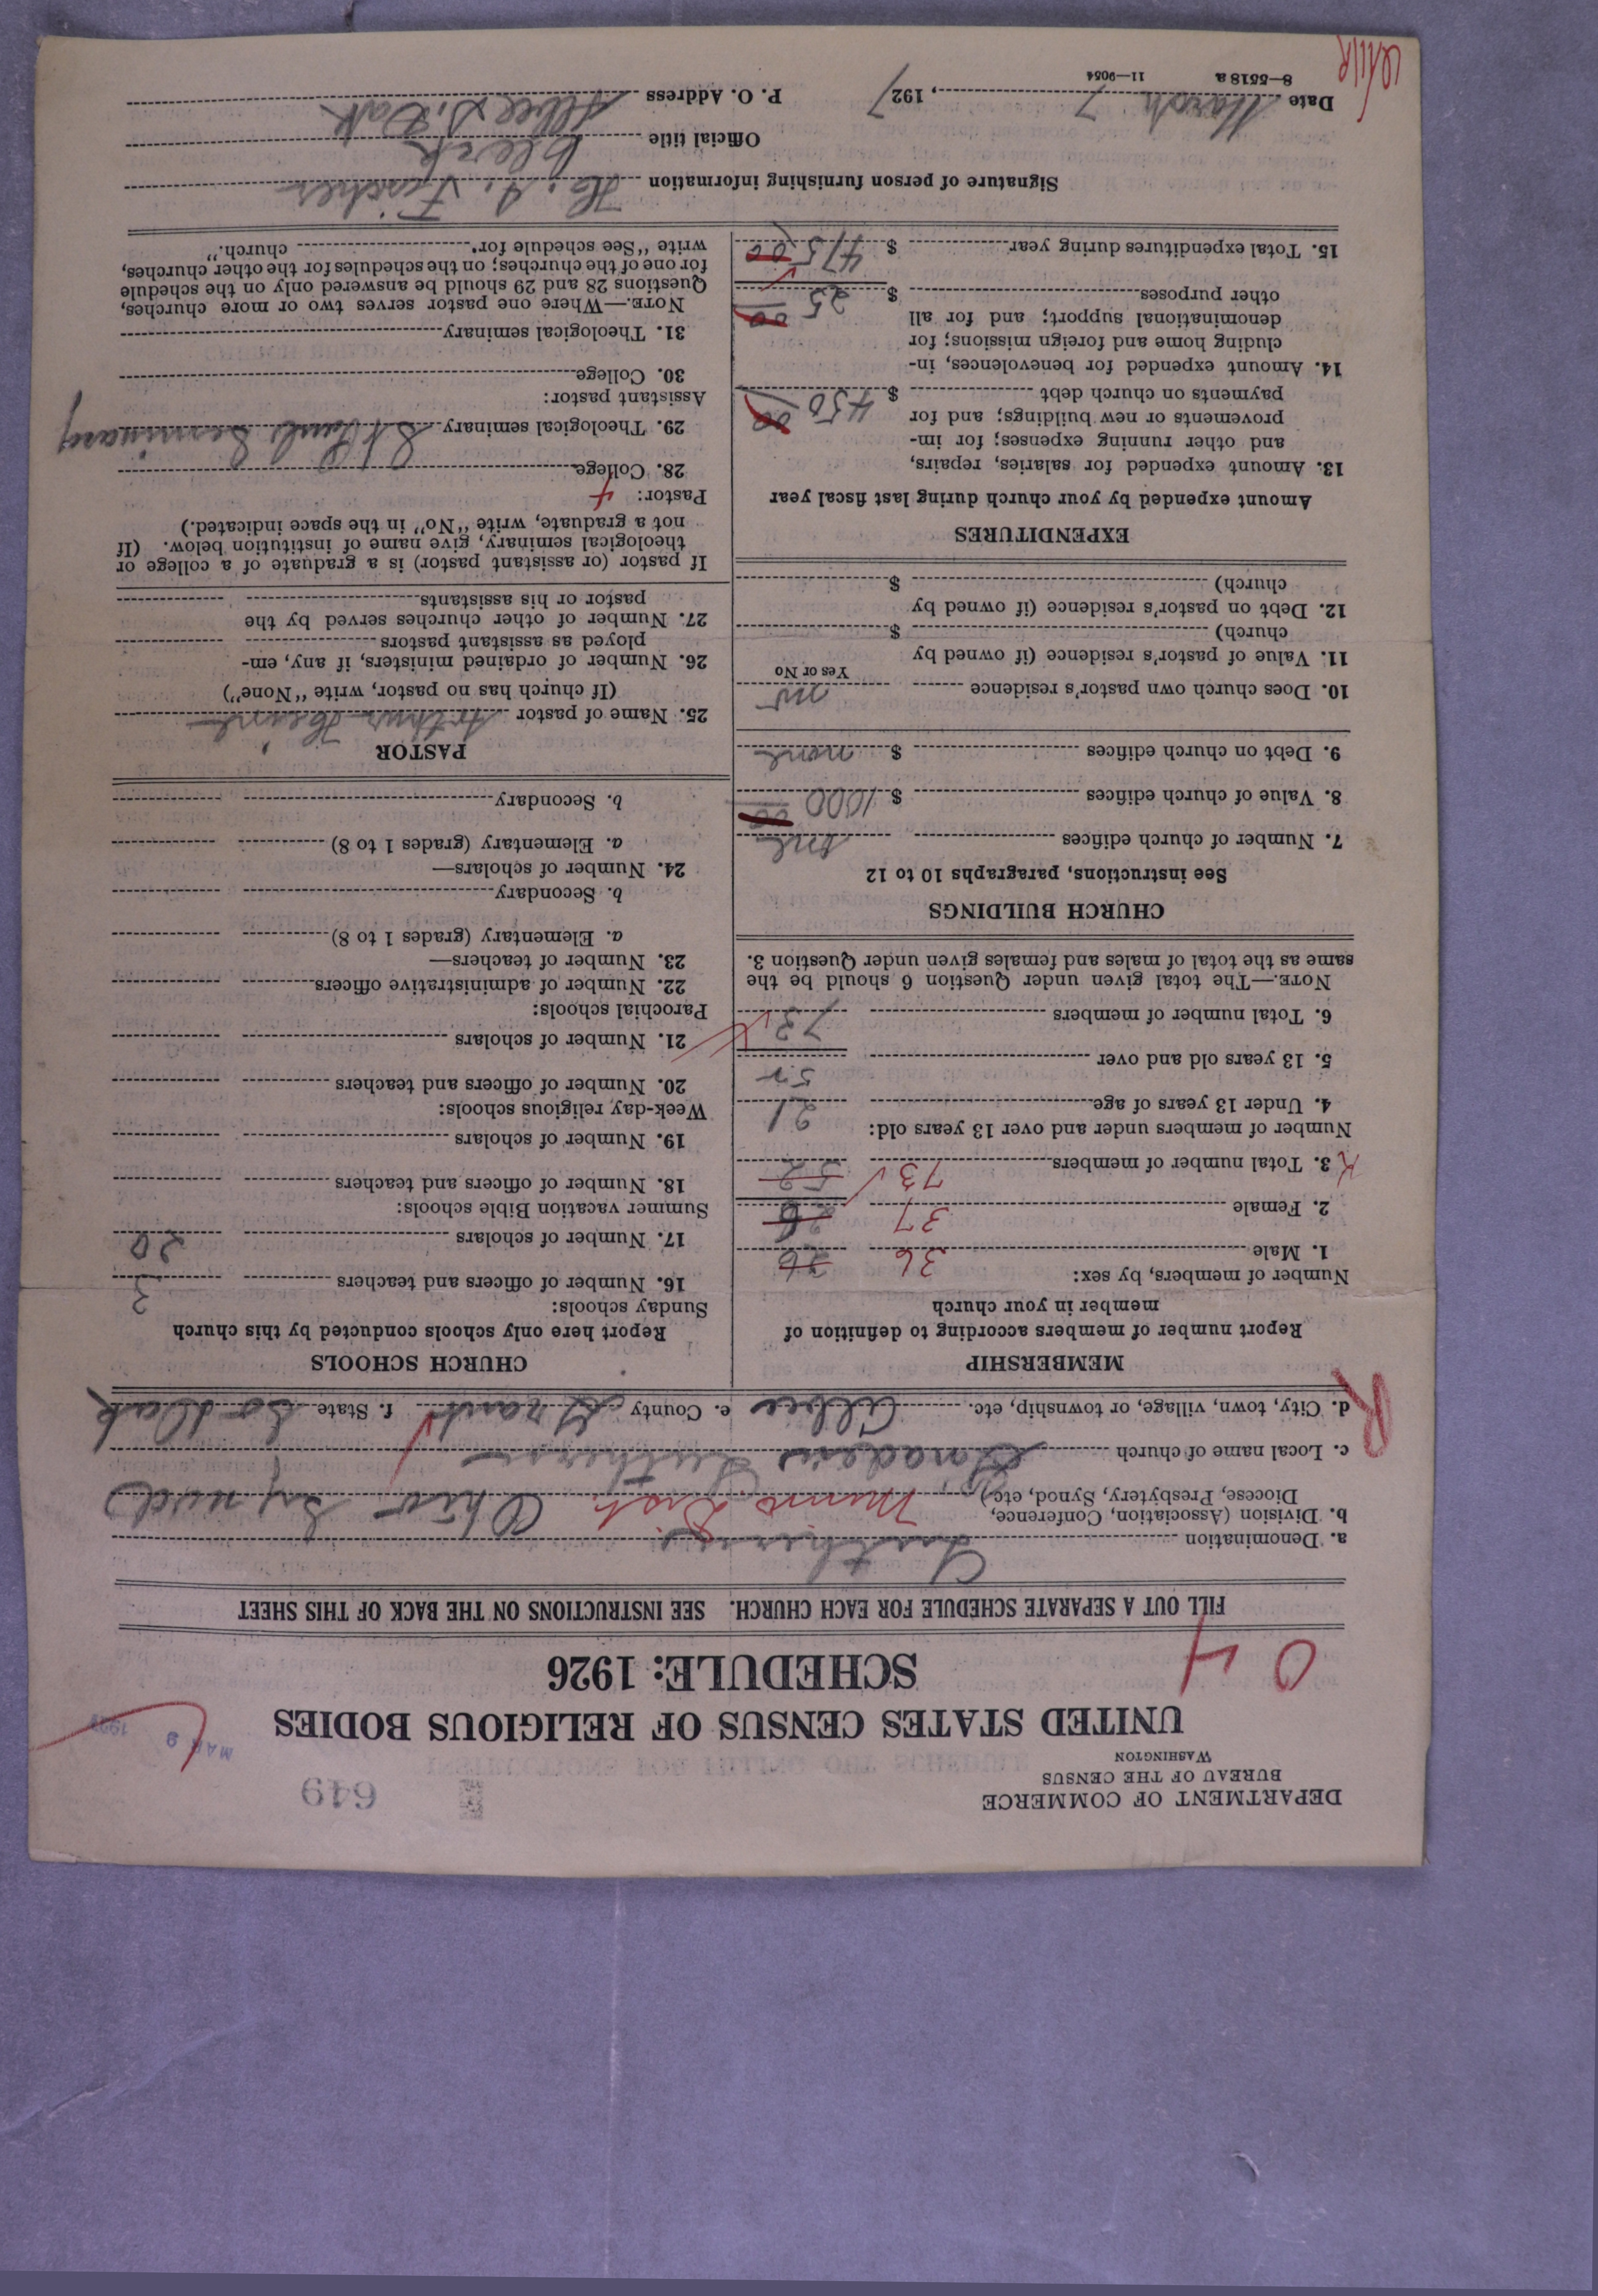 DEPARTMENT OF COMMERCE
BUREAU OF THE CENSUS
WASHINGTON
649
MAR 9 1927
UNITED STATES CENSUS OF RELIGIOUS BODIES
SCHEDULE: 1926
0 4
FILL OUT A SEPARATE SCHEDULE FOR EACH CHURCH. SEE INSTRUCTIONS ON THE BACK OF THIS SHEET
a. Denomination Lutheran
b. Division (Association, Conference, Diocese, Presbytery, Synod, etc.) Minn. Dist. Ohio Synod
c. Local name of church Lutheran
d. City, town, village, or township, etc. Albee e. County Grant f. State So Dak
R
MEMBERSHIP
Report number of members according to definition of
member in your church
Number of members, by sex:
1. Male 36 26
2. Female 37 26
3. Total number of members 73 52
Number of members under and over 13 years old:
4. Under 13 years of age 21
5. 13 years old and over 52
6. Total number of members 73
NOTE.—The total given under Question 6 should be the
same as the total of males and females given under Question 3.
CHURCH BUILDINGS
See instructions, paragraphs 10 to 12
7. Number of church edifices one
8. Value of church edifices $ 1000 00
9. Debt on church edifices $ none
10. Does church own pastor's residence no
Yes or No
11. Value of pastor's residence (if owned by
church) $
12. Debt on pastor's residence (if owned by
church) $
EXPENDITURES
Amount expended by your church during last fiscal year
13. Amount expended for salaries, repairs,
and other running expenses; for im-
provements or new buildings; and for
payments on church debt $ 450 00
14. Amount expended for benevolences, in-
cluding home and foreign missions; for
denominational support; and for all
other purposes $ 25 00
15. Total expenditures during year $ 475 00
CHURCH SCHOOLS
Report here only schools conducted by this church
Sunday schools:
16. Number of officers and teachers 3
17. Number of scholars 20
Summer vacation Bible schools:
18. Number of officers and teachers
19. Number of scholars
Week-day religious schools:
20. Number of officers and teachers
21. Number of scholars
Parochial schools:
22. Number of administrative officers
23. Number of teachers—
a. Elementary (grades 1 to 8)
b. Secondary
24. Number of scholars—
a. Elementary (grades 1 to 8)
b. Secondary
PASTOR
25. Name of pastor Arthur
(If church has no pastor, write "None")
26. Number of ordained ministers, if any, em-
ployed as assistant pastors
27. Number of other churches served by the
pastor or his assistants
If pastor (or assistant pastor) is a graduate of a college or
theological seminary, give name of institution below. (If
not a graduate, write "No" in the space indicated.)
Pastor: 4
28. College
29. Theological seminary St Paul Seminary
Assistant pastor:
30. College
31. Theological seminary
NOTE.—Where one pastor serves two or more churches,
Questions 28 and 29 should be answered only on the schedule
for one of the churches; on the schedules for the other churches,
write "See schedule for church."
Signature of person furnishing information H. A. Fischer
Official title Clerk
Date March 7, 1927 P. O. Address Albee S. Dak
8—5518 a 11—9054